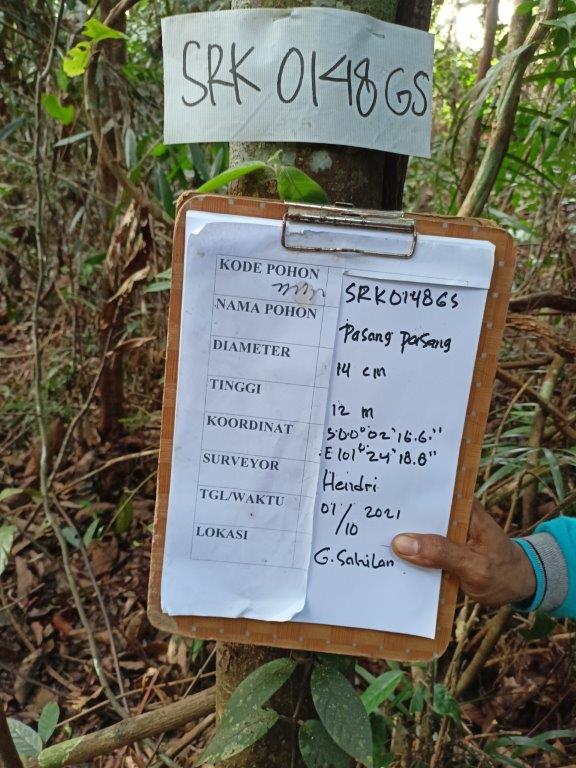 SRK 0148 GS
KODE POHON SRK0148GS
NAMA POHON Pasang Pasang
DIAMETER 14 cm
TINGGI 12 m
KOORDINAT S 00° 02' 16.6"
E 101° 24' 18.8"
SURVEYOR Hendri
TGL/WAKTU 01/10 2021
LOKASI G. Sahilan